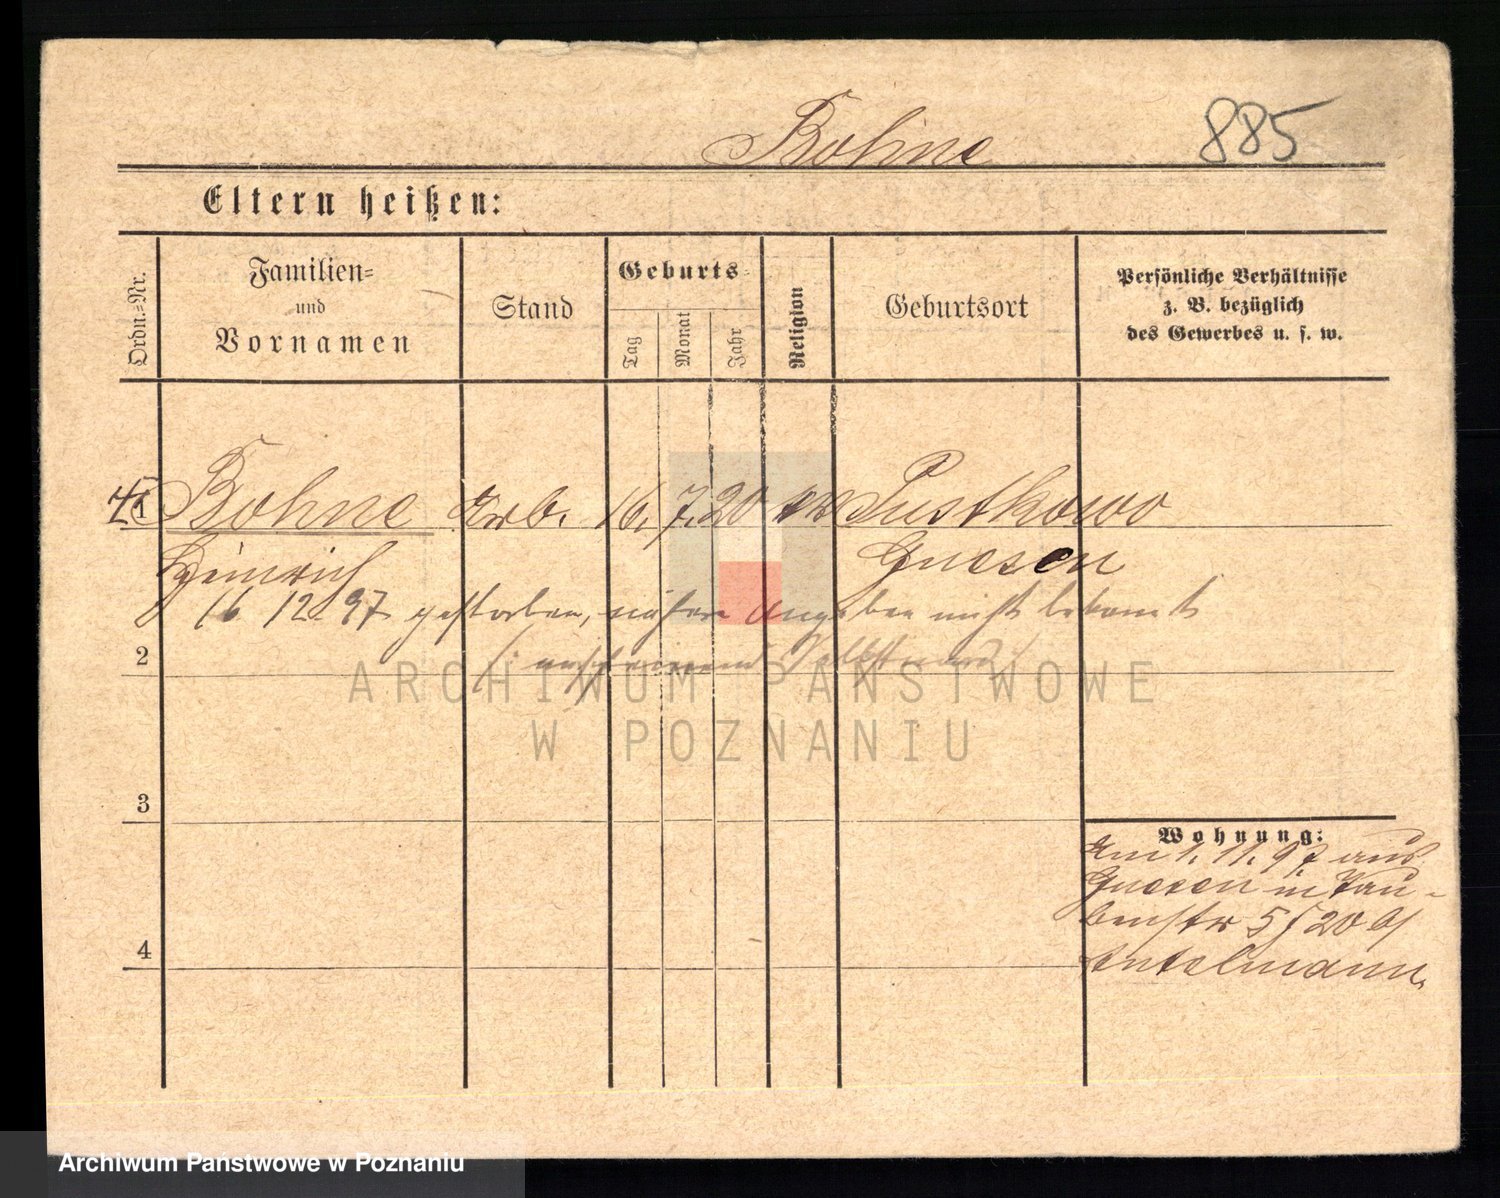 Bohne 885
Eltern heißen:
Ordn.=Nr.
Familien=
und
Vornamen
Stand
Geburts=
Tag
Monat
Jahr
Religion
Geburtsort
Persönliche Verhältnisse
z. B. bezüglich
des Gewerbes u. s. w.
1 Bohne Arb. 16. 7. 20 Pustkowo
Heinrich Gnesen
16 12. 97 gestorben, nähere Angaben nicht bekannt
2
ARCHIWUM PAŃSTWOWE
W POZNANIU
3
Wohnung:
Am 1. 11. 97 aus
Gnesen in Tau-
benstr 5 b/
4
Archiwum Państwowe w Poznaniu